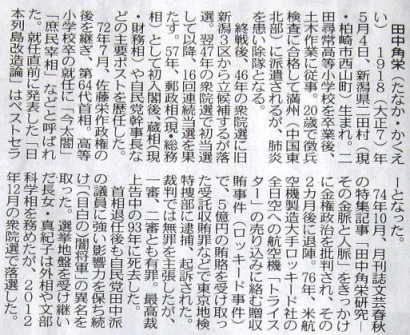 田中角栄(たなか・かくえ
い) 1918(大正7)年
5月4日、新潟県二田村(現
・柏崎市西山町)生まれ。二
田尋常高等小学校を卒業後、
土木作業に従事。20歳で徴兵
検査に合格して満州(中国東
北部)に派遣されるが、肺炎
を患い除隊となる。
終戦後、46年の衆院選に旧
新潟3区から立候補するが落
選。翌47年の衆院選で初当選
して以降、16回連続当選を果
たす。57年、郵政相(現・総務
相)として初入閣後、蔵相(現
・財務相)や自民党幹事長な
どの主要ポストを歴任した。
72年7月、佐藤栄作政権の
後を継ぎ、第64代首相。高等
小学校卒の就任に「今太閤」
「庶民宰相」などと呼ばれ
た。就任直前に発表した「日
本列島改造論」はベストセラ
ーとなった。
74年10月、月刊誌文芸春秋
の特集記事「田中角栄研究―
その金脈と人脈」をきっかけ
に金権政治を批判され、その
2カ月後に退陣。76年、米航
空機製造大手ロッキード社の
全日空への航空機「トライス
ター」の売り込みに絡む贈収
賄事件(ロッキード事件)
で、5億円の賄賂を受け取っ
た受託収賄罪などで東京地検
特捜部に逮捕、起訴された。
裁判では無罪を主張したが、
一審、二審とも有罪。最高裁
上告中の93年に死去した。
首相退任後も自民党田中派
の議員に強い影響力を保ち続
け「目白の闇将軍」の異名を
取った。選挙地盤を受け継い
だ長女・真紀子は外相や文部
科学相を務めたが、2012
年12月の衆院選で落選した。